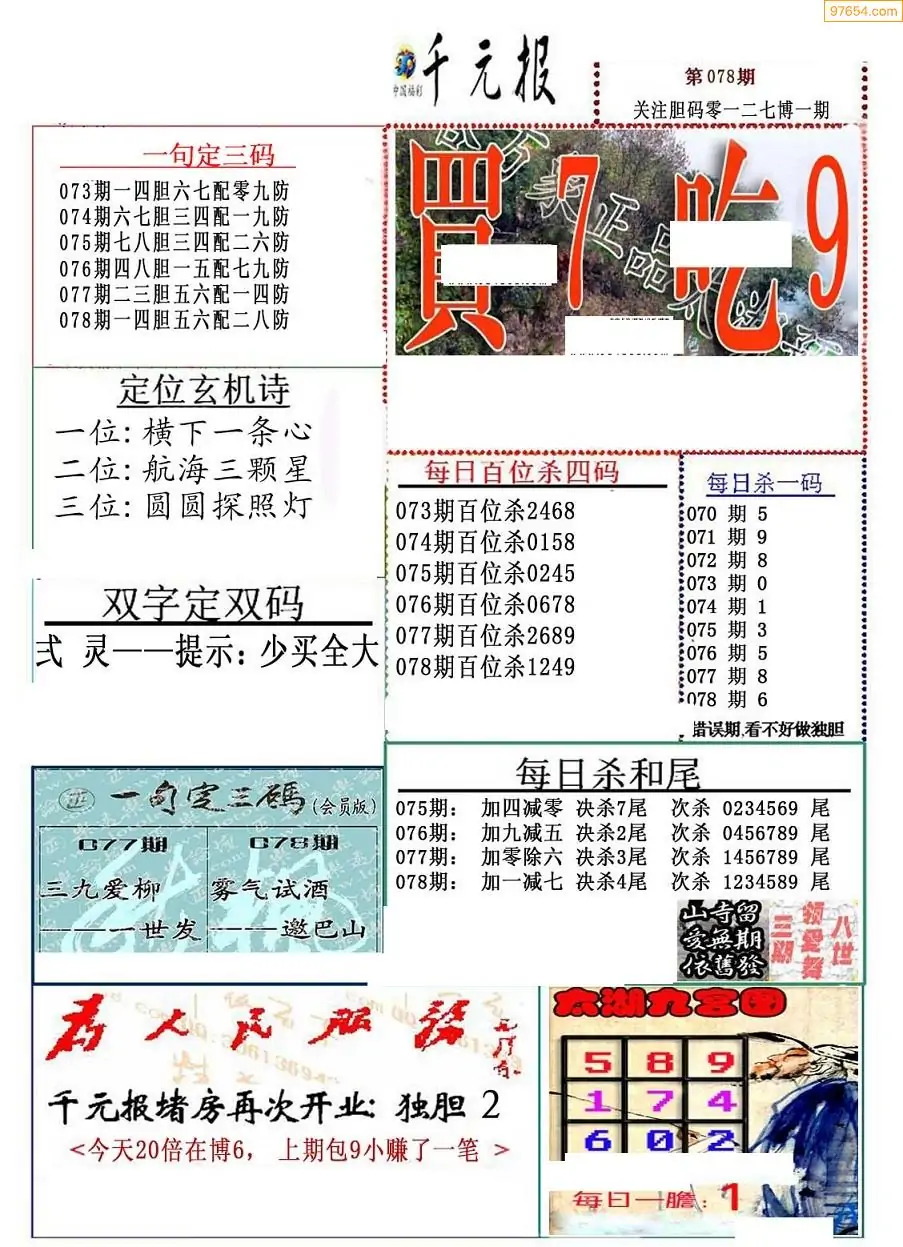 97654.com
千元报
中国福彩
第078期
关注胆码零一二七博一期
一句定三码
073期一四胆六七配零九防
074期六七胆三四配一九防
075期七八胆三四配二六防
076期四八胆一五配七九防
077期二三胆五六配一四防
078期一四胆五六配二八防
買7吃9
定位玄机诗
一位:横下一条心
二位:航海三颗星
三位:圆圆探照灯
每日百位杀四码
073期百位杀2468
074期百位杀0158
075期百位杀0245
076期百位杀0678
077期百位杀2689
078期百位杀1249
每日杀一码
070 期 5
071 期 9
072 期 8
073 期 0
074 期 1
075 期 3
076 期 5
077 期 8
078 期 6
错误期,看不好做独胆
双字定双码
弍 灵——提示:少买全大
一句定三碼(会员版)
077期
三九爱柳
————一世发
078期
雾气试酒
————邀巴山
每日杀和尾
075期: 加四减零 决杀7尾 次杀 0234569 尾
076期: 加九减五 决杀2尾 次杀 0456789 尾
077期: 加零除六 决杀3尾 次杀 1456789 尾
078期: 加一减七 决杀4尾 次杀 1234589 尾
山寺留
愛無期
依舊發
八世
领爱舞
三期
为人民服务
千元报堵房再次开业:独胆 2
<今天20倍在博6, 上期包9小赚了一笔 >
太湖九宫图
5 8 9
1 7 4
6 0 2
每日一膽:1